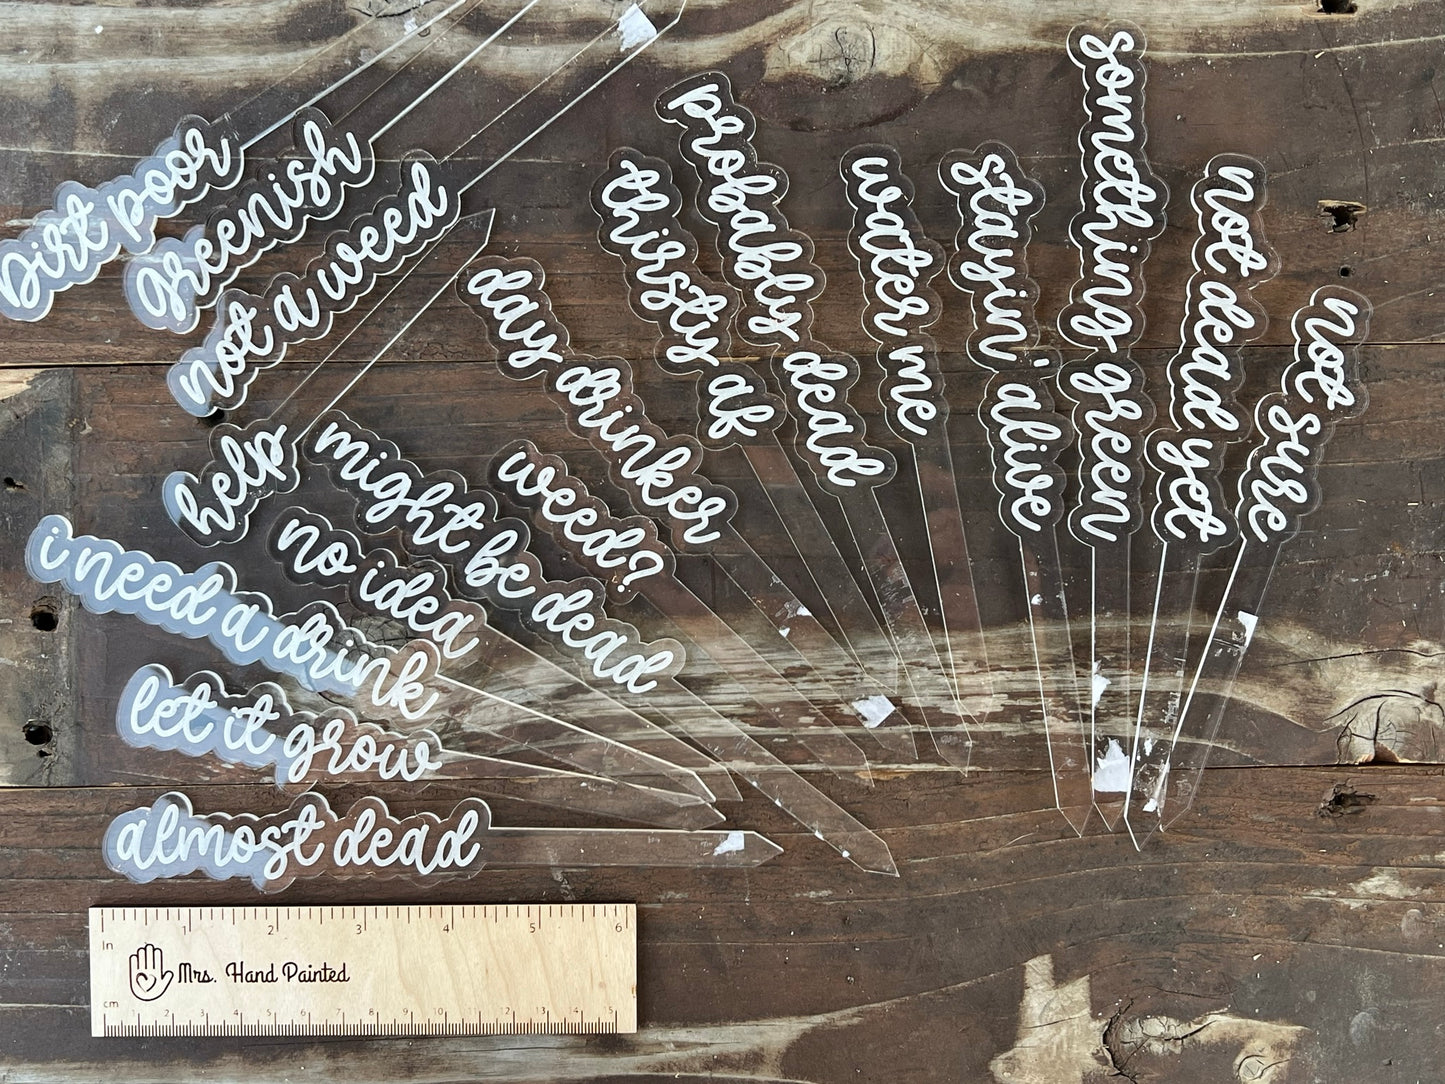 Dirt poor
Greenish
not a weed
help
i need a drink
let it grow
almost dead
no idea
might be dead
weed?
day drinker
thirsty af
probably dead
water me
stayin' alive
something green
not dead yet
not sure
In
1 2 3 4 5 6
Mrs. Hand Painted
cm
1 2 3 4 5 6 7 8 9 10 11 12 13 14 15